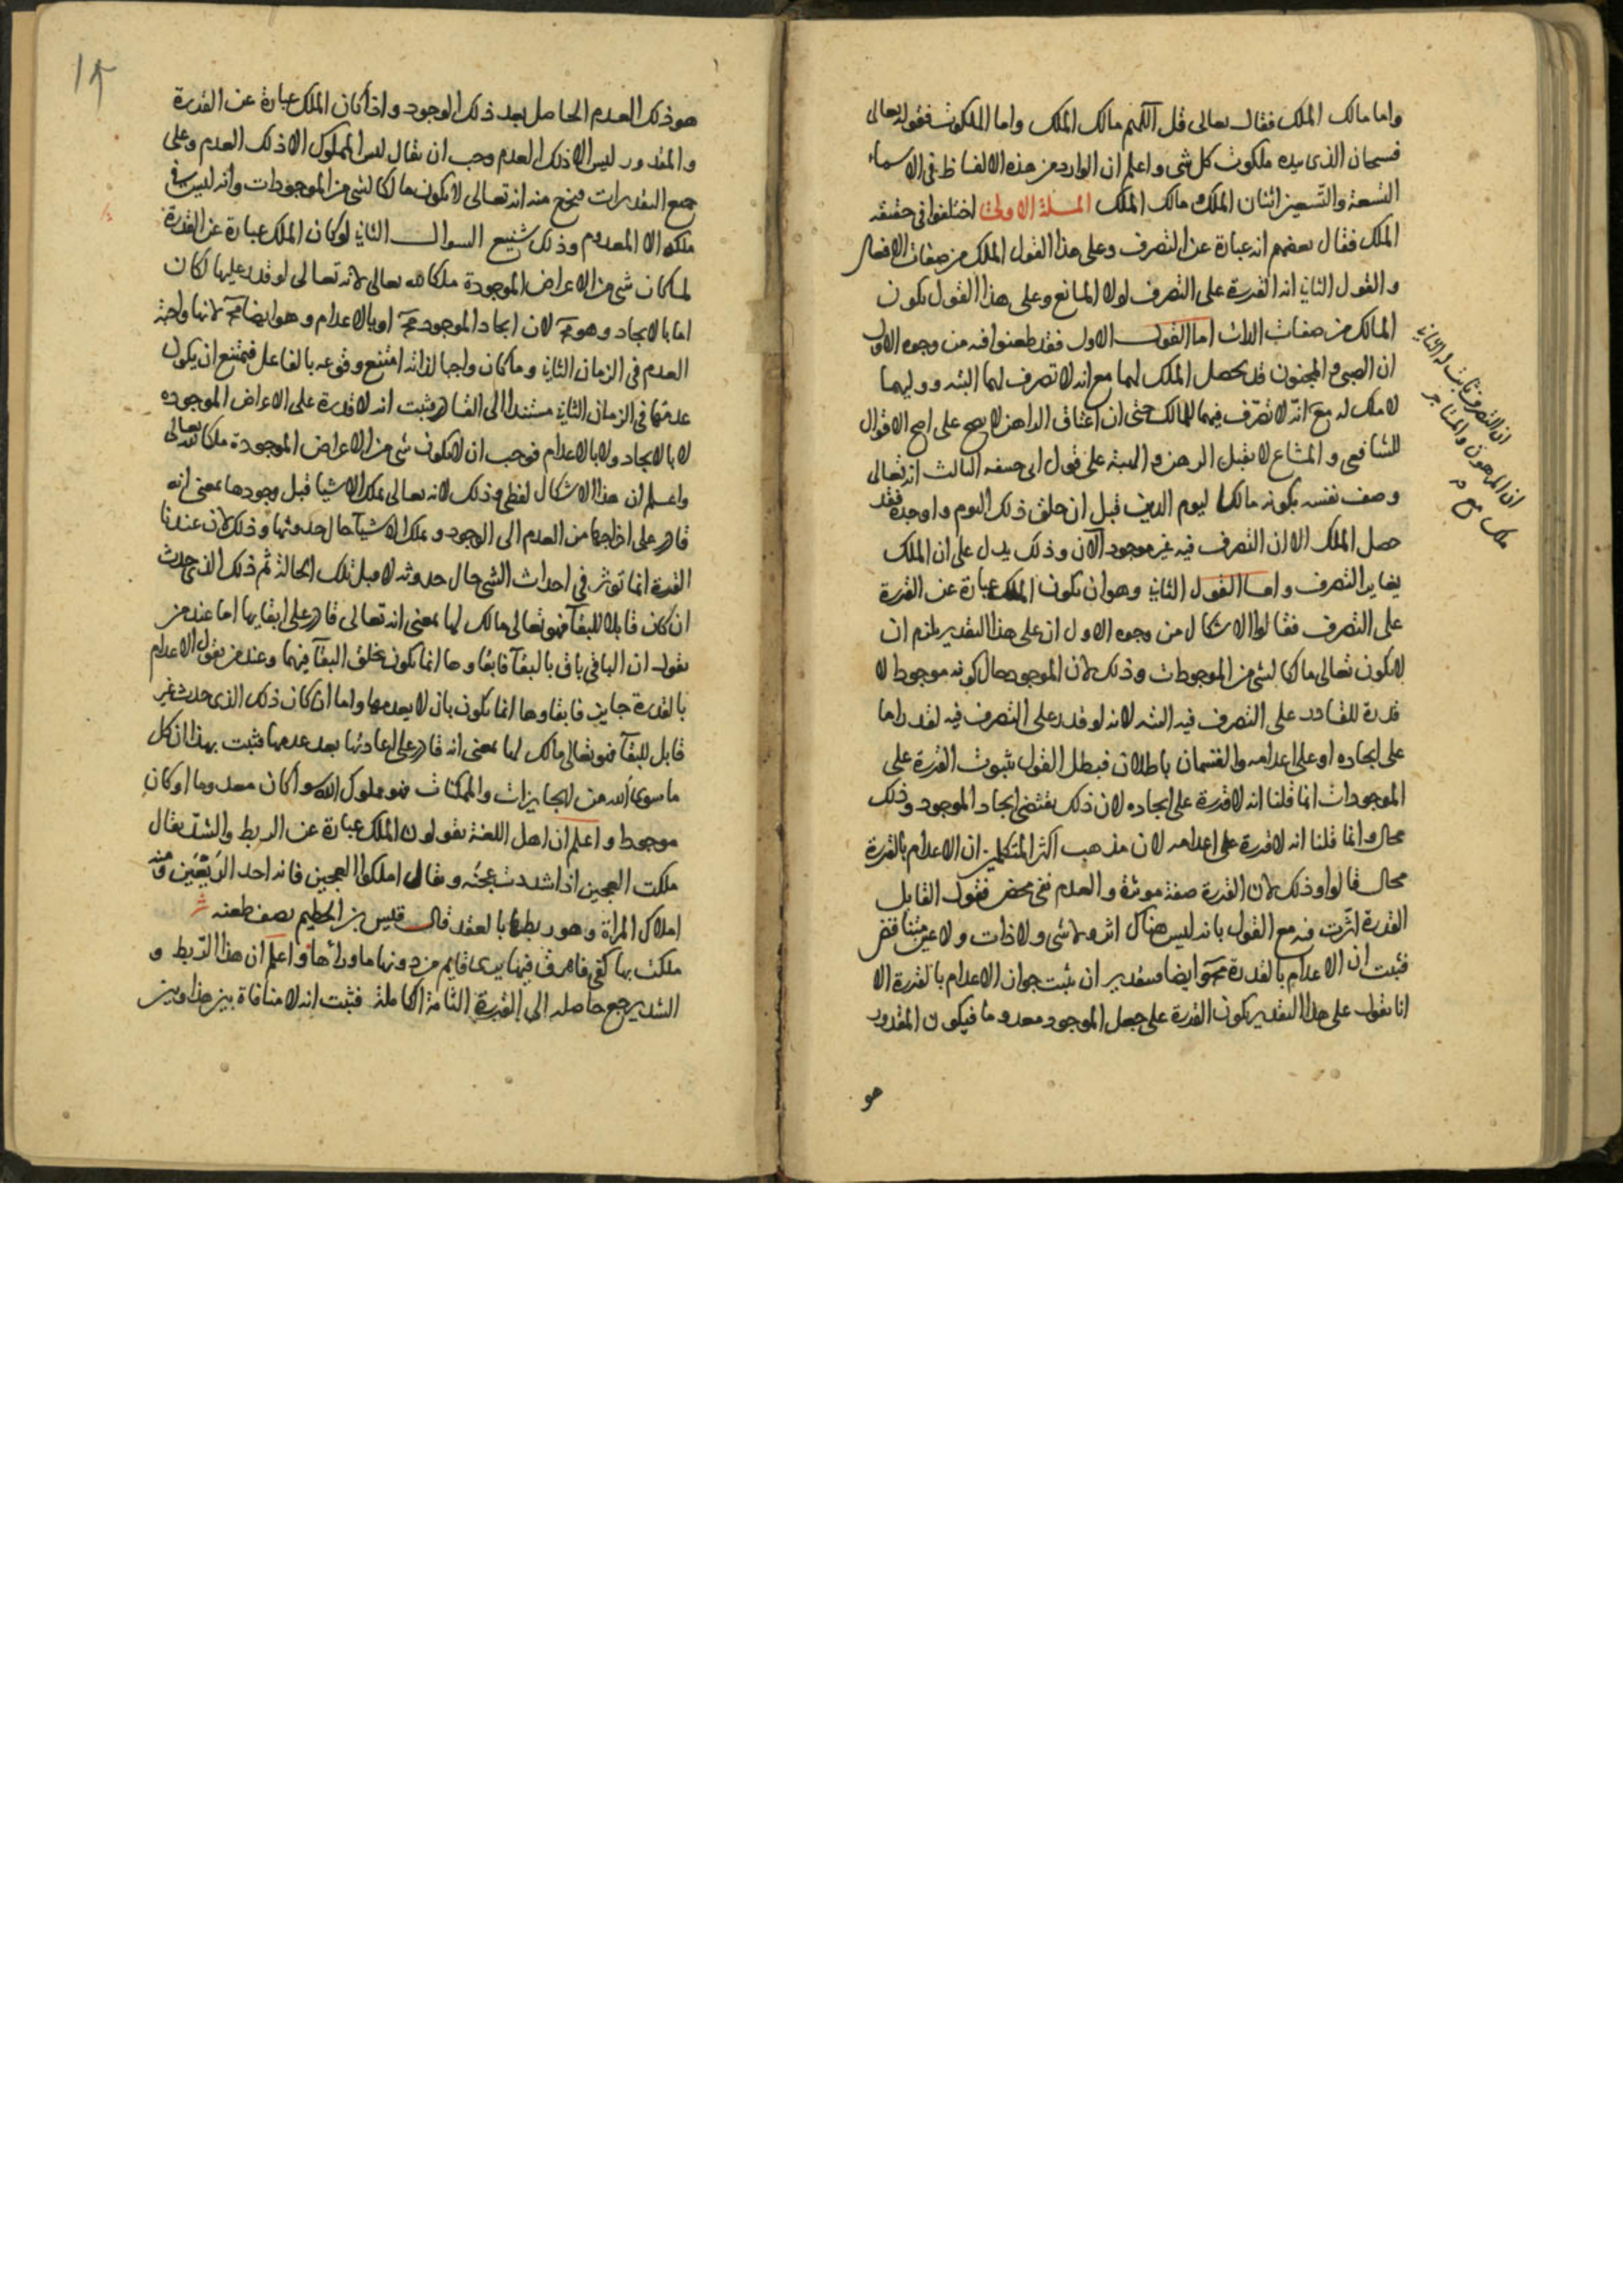 واما مالك الملك فقال تعالى قل اللهم مالك الملك واما الملكوت فقوله تعالى
فسبحان الذى بيده ملكوت كل شى واعلم ان الوارد من هذه الالفاظ فى الاسماء
التسعة والتسعين اثنان الملك ومالك الملك المسئلة الاولى اختلفوا فى حقيقة
الملك فقال بعضهم انه عبارة عن التصرف وعلى هذا القول الملك من صفات الافعال
والقول الثانى انه القدرة على التصرف لولا المانع وعلى هذا القول يكون
المالك من صفات الذات اما القول الاول فقد طعنوا فيه من وجوه الاول
ان الصبى والمجنون قد يحصل الملك لهما مع انه لا تصرف لهما البتة ووليهما
لا ملك له مع انه لا تصرف فيهما للمالك حتى ان اعتاق الراهن لا يصح على اصح الاقوال
للشافعى والمشاع لا يقبل الرهن والهبة على قول ابى حنيفة الثالث انه تعالى
وصف نفسه بكونه مالكا ليوم الدين قبل ان خلق ذلك اليوم واوجده فقد
حصل الملك الا ان التصرف فيه غير موجود الآن وذلك يدل على ان الملك
يغاير التصرف واما القول الثانى وهو ان يكون الملك عبارة عن القدرة
على التصرف فقالوا الاشكال من وجوه الاول ان على هذا التقدير يلزم ان
لا يكون تعالى مالكا لشى من الموجودات وذلك لان الموجود حال كونه موجودا لا
قدرة للقادر على التصرف فيه البتة لانه لو قدر على التصرف فيه لقدر اما
على ايجاده او على اعدامه والقسمان باطلان فبطل القول بثبوت القدرة على
الموجودات انما قلنا انه لا قدرة على ايجاده لان ذلك يقتضى ايجاد الموجود وذلك
محال وانما قلنا انه لا قدرة على اعدامه لان مذهب اكثر المتكلمين ان الاعدام بالقدرة
محال قالوا وذلك لان القدرة صفة موثرة والعدم نفى محض فقول القايل
القدرة اثرت فيه مع القول بانه ليس هناك اثر ولا شى ولا ذات ولا عين متناقض
فثبت ان الاعدام بالقدرة مح وايضا فبتقدير ان يثبت جواز الاعدام بالقدرة الا
انا نقول على هذا التقدير يكون القدرة على جعل الموجود معدوما فيكون المقدور
هو
ان التصرف ثابت له الثانى
ان المرهون والمستاجر
ملك مع
١٢
هو ذلك العدم الحاصل بعد ذلك الوجود واذا كان الملك عبارة عن القدرة
والمقدور ليس الا ذلك العدم وجب ان يقال ليس المملوك الا ذلك العدم وعلى
جميع التقديرات فيخرج منه انه تعالى لا يكون مالكا لشى من الموجودات وانه ليس فى
ملكه الا المعدوم وذلك شنيع السوال الثانى لو كان الملك عبارة عن القدرة
لما كان شى من الاعراض الموجودة ملكا لله تعالى لانه تعالى لو قدر عليها لكان
اما بالايجاد وهو مح لان ايجاد الموجود مح او بالاعدام وهو ايضا مح لانها واجبة
العدم فى الزمان الثانى وما كان واجبا لذاته امتنع وقوعه بالفاعل فيمتنع ان يكون
عدمها فى الزمان الثانى مستندا الى القادر فثبت انه لا قدرة على الاعراض الموجوده
لا بالايجاد ولا بالاعدام فوجب ان لا يكون شى من الاعراض الموجودة ملكا لله تعالى
واعلم ان هذا الاشكال لفظى وذلك لانه تعالى يملك الاشيا قبل وجودها بمعنى انه
قادر على اخراجها من العدم الى الوجود ويملك الاشيآ حال حدوثها وذلك لان عندنا
القدرة انما توثر فى احداث الشى حال حدوثه لا قبل تلك الحالة ثم ذلك الذى حدث
ان كان قابلا للبقآ فهو تعالى مالك لها بمعنى انه تعالى قادر على ابقايها اما عند من
يقول ان الباقى باق بالبقآ فابقاوها انما يكون بخلق البقآ فيها وعند من يقول الاعدام
بالقدرة جايز فابقاوها انما يكون بان لا يعدمها واما ان كان ذلك الذى حدث غير
قابل للبقآ فهو تعالى مالك لها بمعنى انه قادر على اعادتها بعد عدمها فثبت بهذا ان كل
ما سوى الله من الجايزات والممكنات فهو مملوك الله سوا كان معدوما او كان
موجودا واعلم ان اهل اللغة يقولون الملك عبارة عن الربط والشد يقال
ملكت العجين اذا شددت عجنه ويقال املكوا العجين فانه احد الريعين ومنه
املاك المراة وهو ربطها بالعقد قال قيس بن الحطيم يصف طعنه
ملكت بها كفى فانهرت فتقها يرى قايم من دونها ما وراءها واعلم ان هذا الربط و
الشد يرجع حاصله الى القدرة التامة الكاملة فثبت انه لا منافاة بين هذا وبين